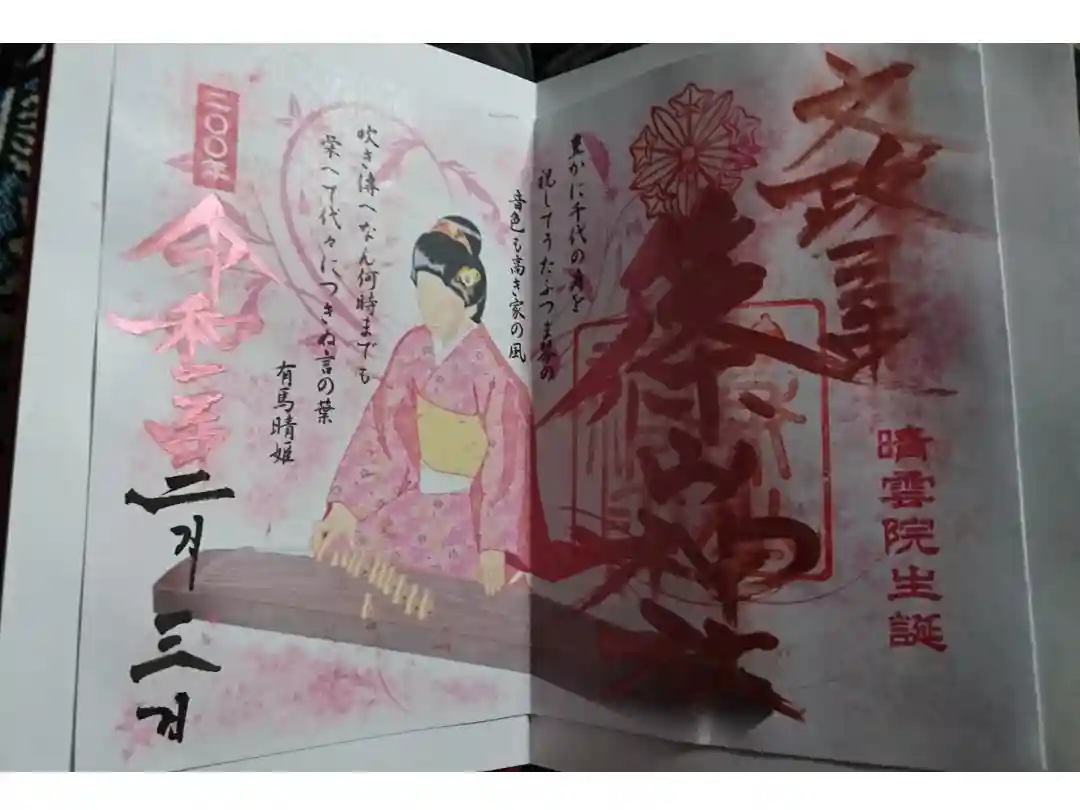 文政
篠山神社
晴雲院生誕
豊かに千代の を
祝してうたふつま琴の
音色も高き家の風
吹き傳へなん何時までも
栄へて代々につきぬ言の葉
有馬晴姫
二〇〇年
令和
二月三日